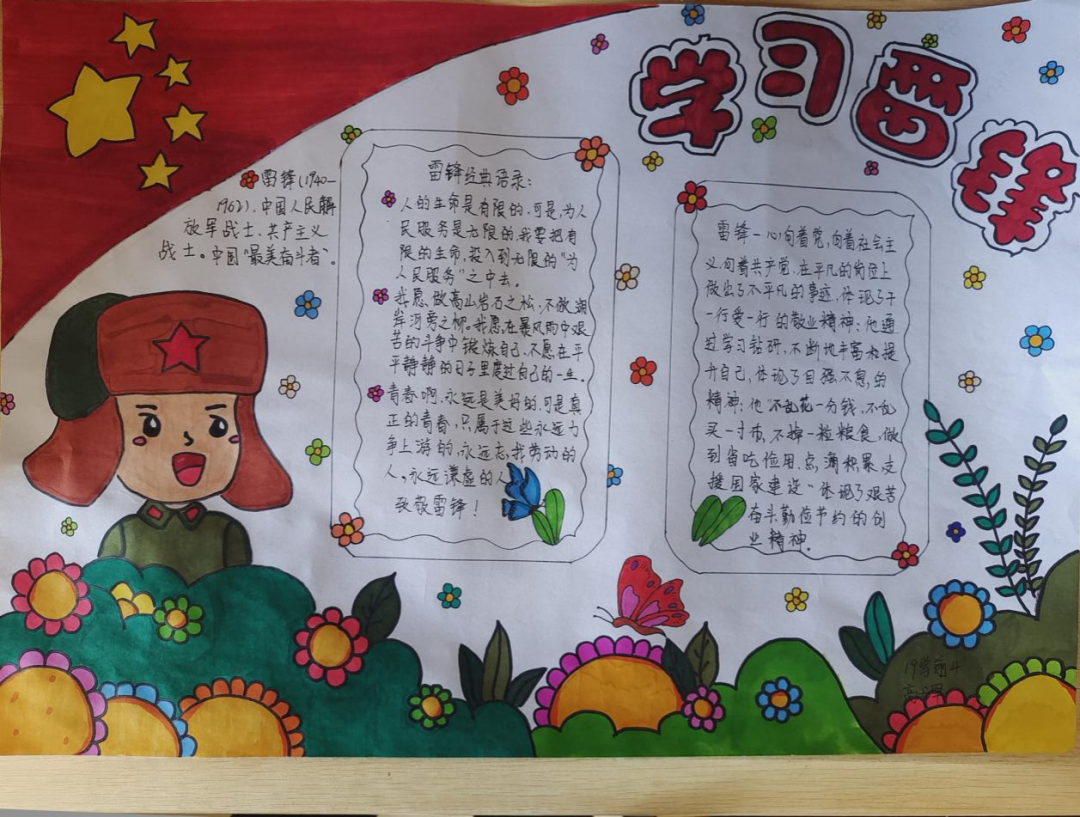 学习雷锋
雷锋(1940—
1962),中国人民解
放军战士,共产主义
战士。中国"最美奋斗者"。
雷锋经典语录:
人的生命是有限的,可是,为人
民服务是无限的,我要把有
限的生命,投入到无限的"为
人民服务"之中去。
我愿做高山岩石之松,不做湖
岸河旁之柳。我愿在暴风雨中艰
苦的斗争中锻炼自己,不愿在平
平静静的日子里度过自己的一生。
青春啊,永远是美好的,可是真
正的青春,只属于这些永远力
争上游的,永远忘我劳动的
人,永远谦虚的人
致敬雷锋!
雷锋一心向着党,向着社会主
义,向着共产党,在平凡的岗位上
做出了不平凡的事迹,体现了干
一行爱一行的敬业精神;他通
过学习钻研,不断地丰富和提
升自己,体现了自强不息,的
精神;他"不乱花一分钱,不乱
买一寸布,不掉一粒粮食,做
到省吃俭用,点滴积累,支
援国家建设"体现了艰苦
奋斗勤俭节约的创
业精神。